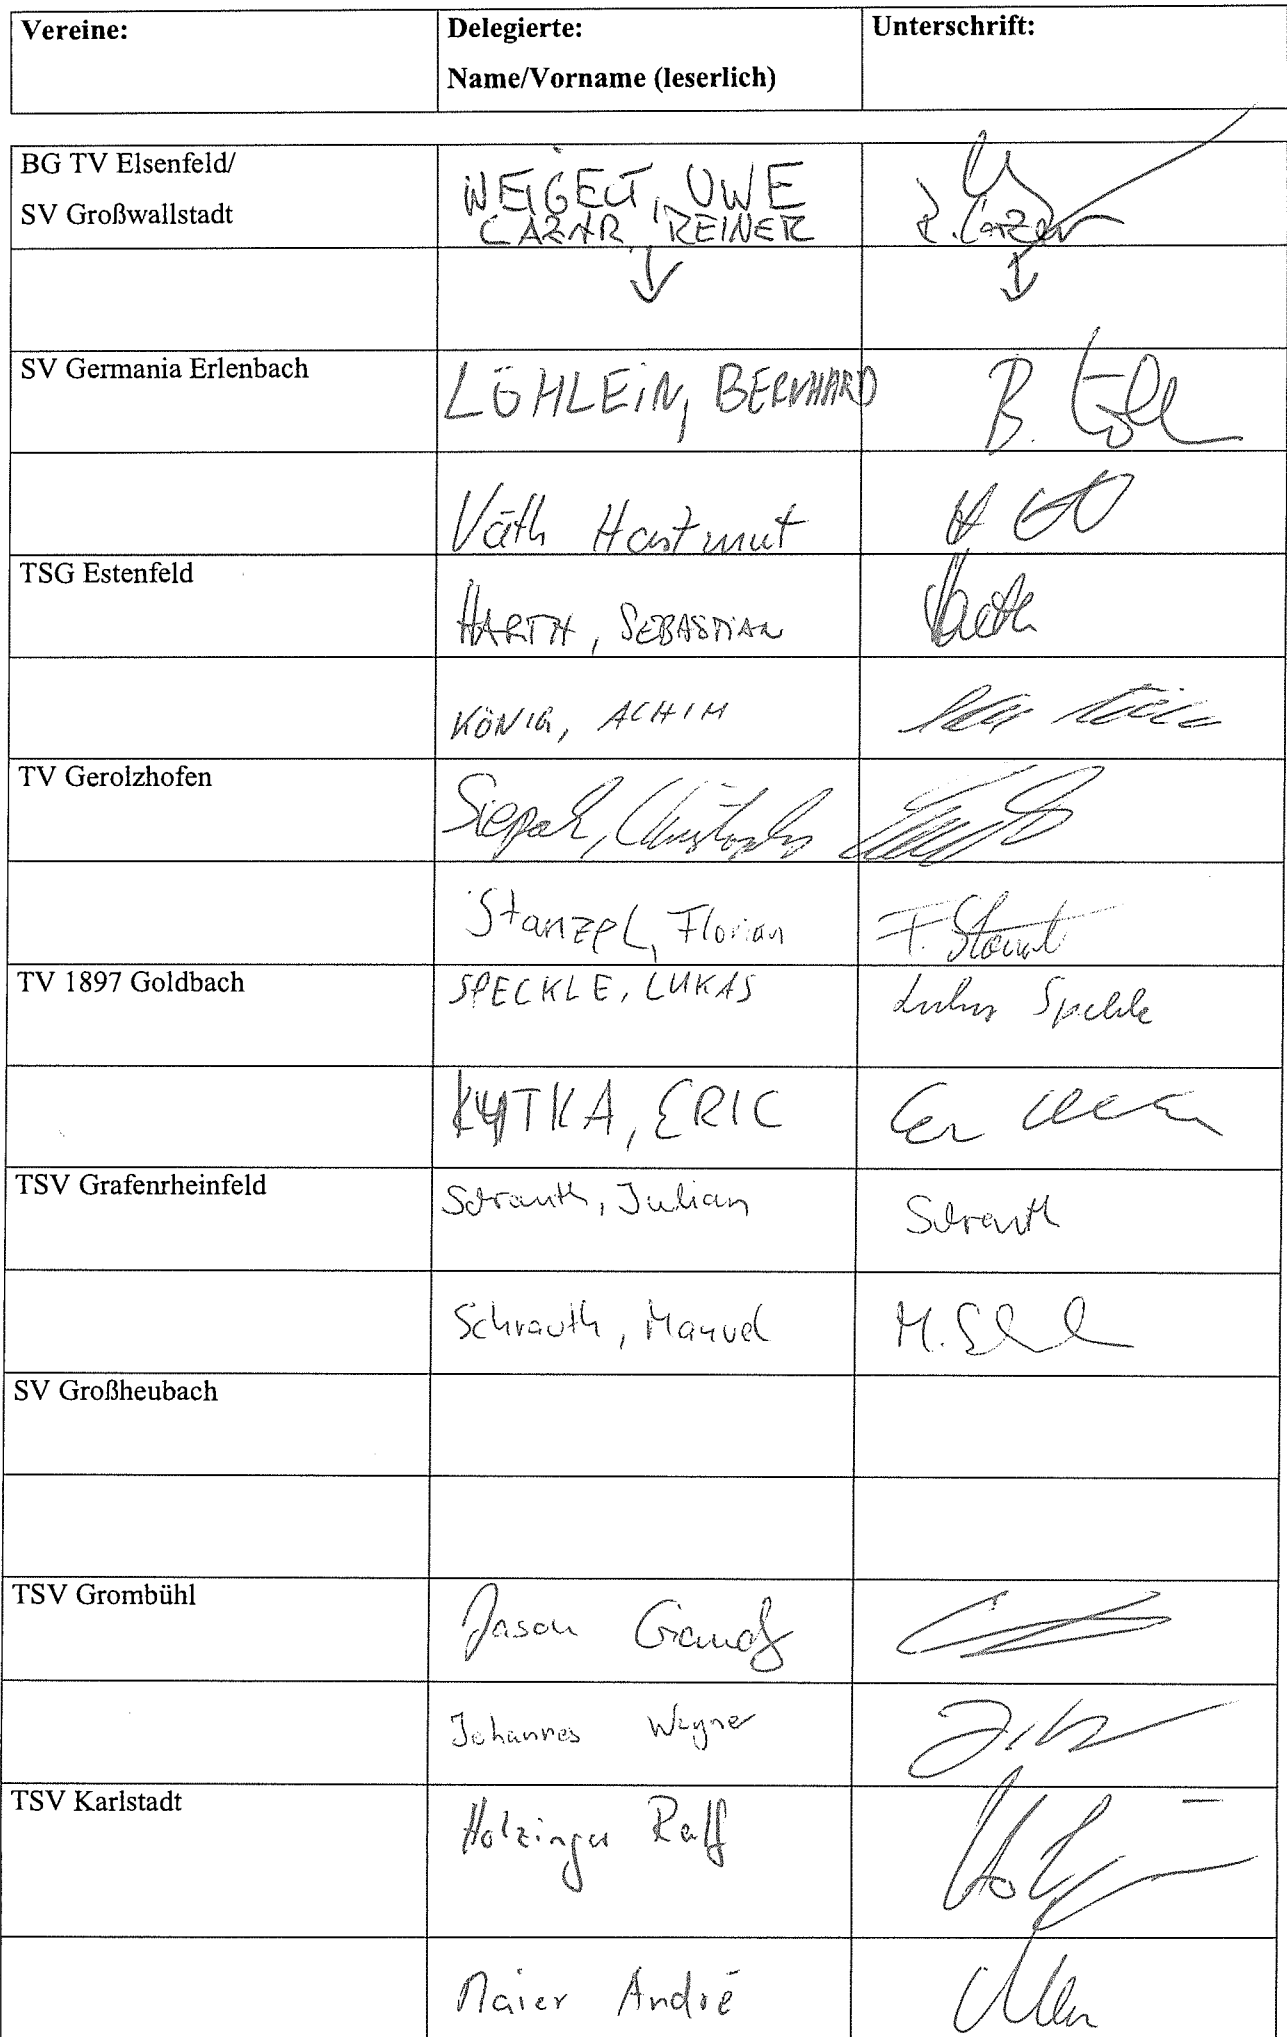 Vereine: Delegierte: Unterschrift:
Name/Vorname (leserlich)
BG TV Elsenfeld/ WEIGELT, UWE
SV Großwallstadt CAZAR, REINER R. Cazar
↓ ↓
SV Germania Erlenbach LÖHLEIN, BERNHARD B.
Väth Hartmut
TSG Estenfeld HARTH, SEBASTIAN Harth
KÖNIG, ACHIM
TV Gerolzhofen Christopher
Stanzel, Florian F. Stanzel
TV 1897 Goldbach SPECKLE, LUKAS Lukas Speckle
KYTKA, ERIC
TSV Grafenrheinfeld Schrauth, Julian Schrauth
Schrauth, Manuel M.
SV Großheubach
TSV Grombühl Jason
Johannes Wagner
TSV Karlstadt Holzinger Ralf
Maier André